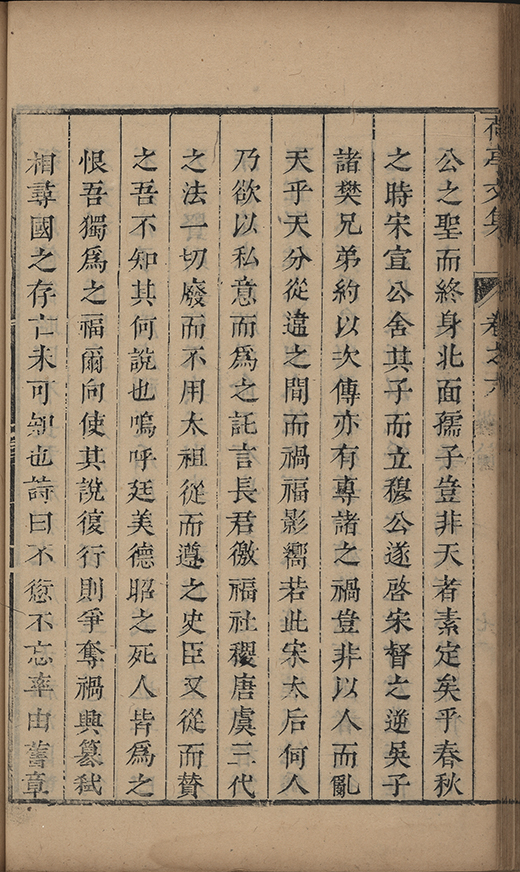 荷亭文集
卷之六
公之聖而終身北面孺子豈非天者素定矣乎春秋
之時宋宣公舍其子而立穆公遂啓宋督之逆吳子
諸樊兄弟約以次傳亦有專諸之禍豈非以人而亂
天乎天分從違之間而禍福影嚮若此宋太后何人
乃欲以私意而爲之託言長君徼福社稷唐虞三代
之法一切廢而不用太祖從而遵之史臣又從而贊
之吾不知其何說也嗚呼廷美德昭之死人皆爲之
恨吾獨爲之福爾向使其說復行則爭奪禍興簒弒
相尋國之存亡未可知也詩曰不愆不忘率由舊章